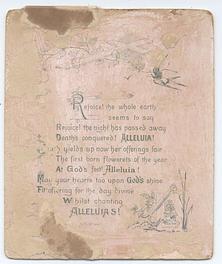 Rejoice! the whole earth
seems to say
Rejoice! the night has passed away
Death's conquered! ALLELUIA!
yields up now her offerings fair
The first born flowerets of the year
At God's feet Alleluia!
May your hearts too upon God's shine
Fit offering for the day divine
Whilst chanting
ALLELUIAS!